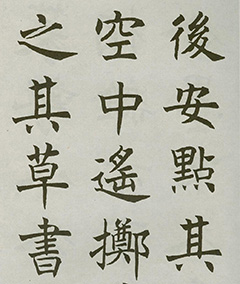 後安點其
空中遙擲
之其草書